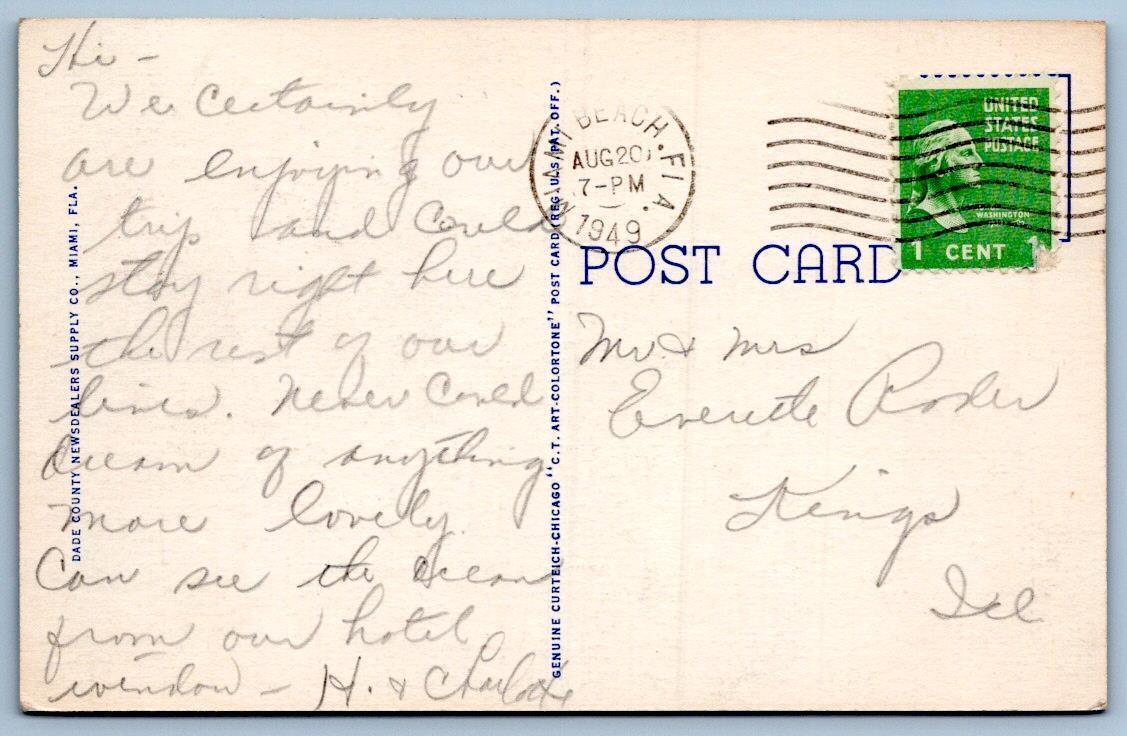 Hi -
We certainly
are enjoying our
trip and could
stay right here
the rest of our
lives. Never could
dream of anything
more lovely.
Can see the ocean
from our hotel
window - H. & Charlotte
DADE COUNTY NEWSDEALERS SUPPLY CO., MIAMI, FLA.
GENUINE CURTEICH-CHICAGO "C.T. ART-COLORTONE" POST CARD (REG. U.S. PAT. OFF.)
MIAMI BEACH, FLA.
AUG 20
7-PM
1949
UNITED
STATES
POSTAGE
WASHINGTON
1 CENT 1
POST CARD
Mr. & Mrs
Everette Roder
Kings
Ill